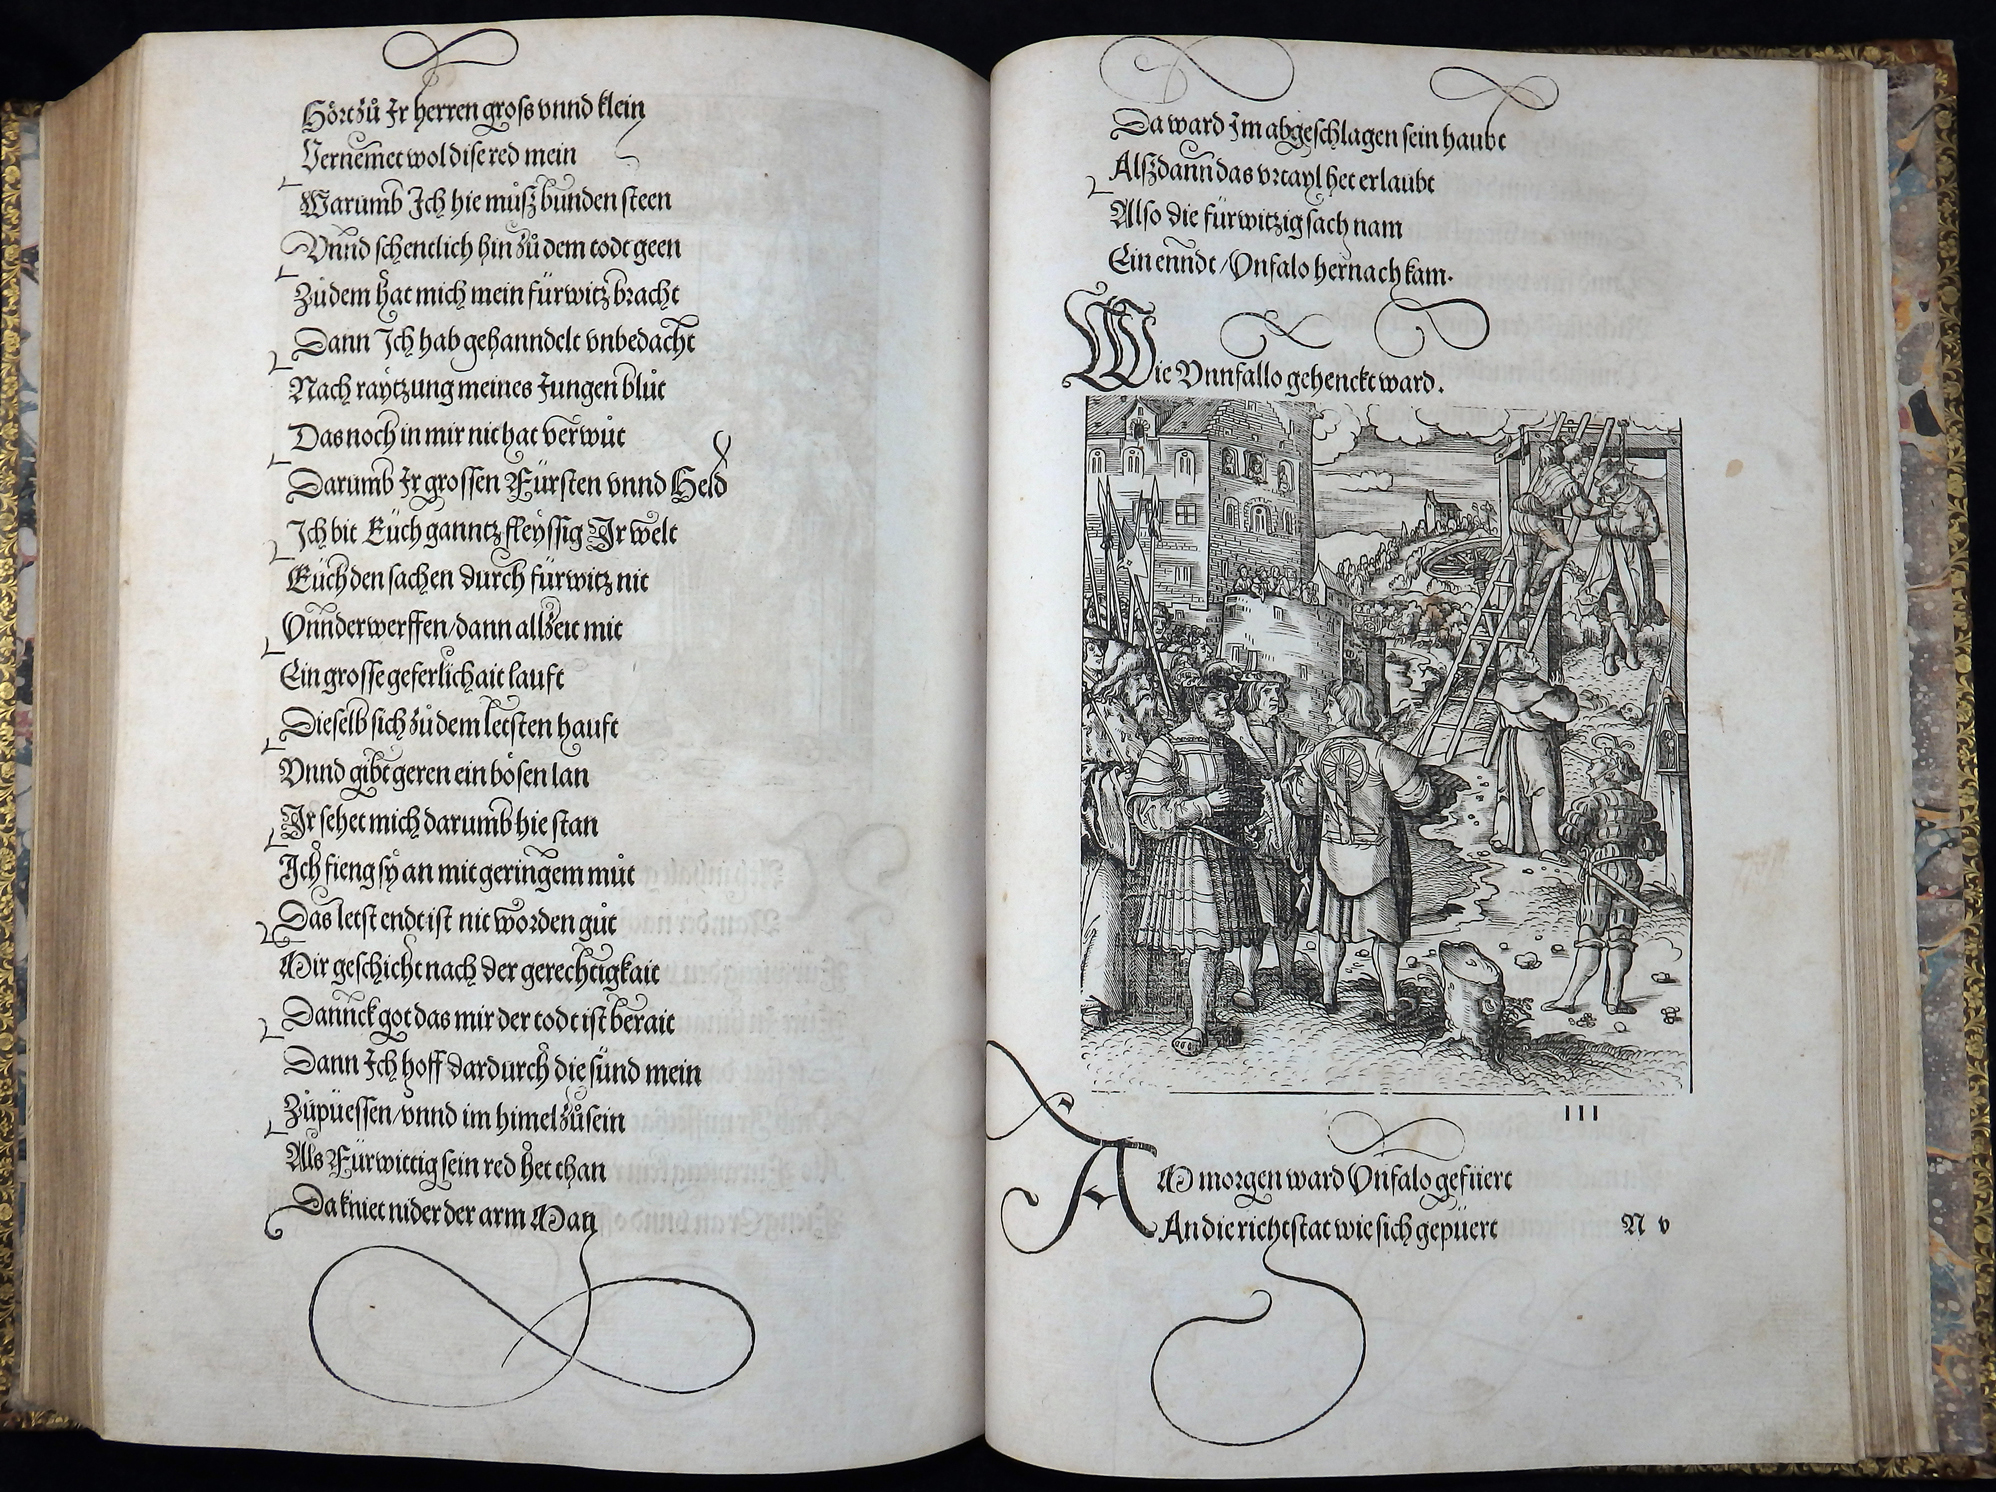 Hört zů Ir herren gross vnnd klein
Vernemet wol dise red mein
Warumb Ich hie můß bunden steen
Vnnd schentlich hin zů dem todt geen
Zů dem hat mich mein fürwitz bracht
Dann Ich hab gehanndelt vnbedacht
Nach raytzung meines Jungen blůt
Das noch in mir nit hat verwůt
Darumb Ir grossen Fürsten vnnd Held
Ich bit Euch ganntz fleyssig Ir welt
Euch den sachen durch fürwitz nit
Vnnderwerffen/dann allzeit mit
Ein grosse geferlichait lauft
Dieselb sich zů dem letsten hauft
Vnnd gibt geren ein bösen lan
Ir sehet mich darumb hie stan
Ich fieng sy an mit geringem můt
Das letst endt ist nit worden gůt
Mir geschicht nach der gerechtigkait
Dannck got das mir der todt ist berait
Dann Ich hoff dardurch die sünd mein
Zůpüessen/vnnd im himel zůsein
Als Fürwittig sein red het than
Da kniet nider der arm Man
Da ward Im abgeschlagen sein haubt
Alßdann das vrtayl het erlaubt
Also die fürwitzig sach nam
Ein enndt/Vnfalo hernach kam.
Wie Vnnfallo gehenckt ward.
III
AM morgen ward Vnfalo gefüert
An die richtstat wie sich gepüert
N v